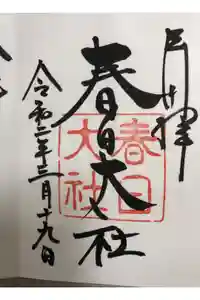 奉拝
春日大社
春日
大社
令和二年三月十九日